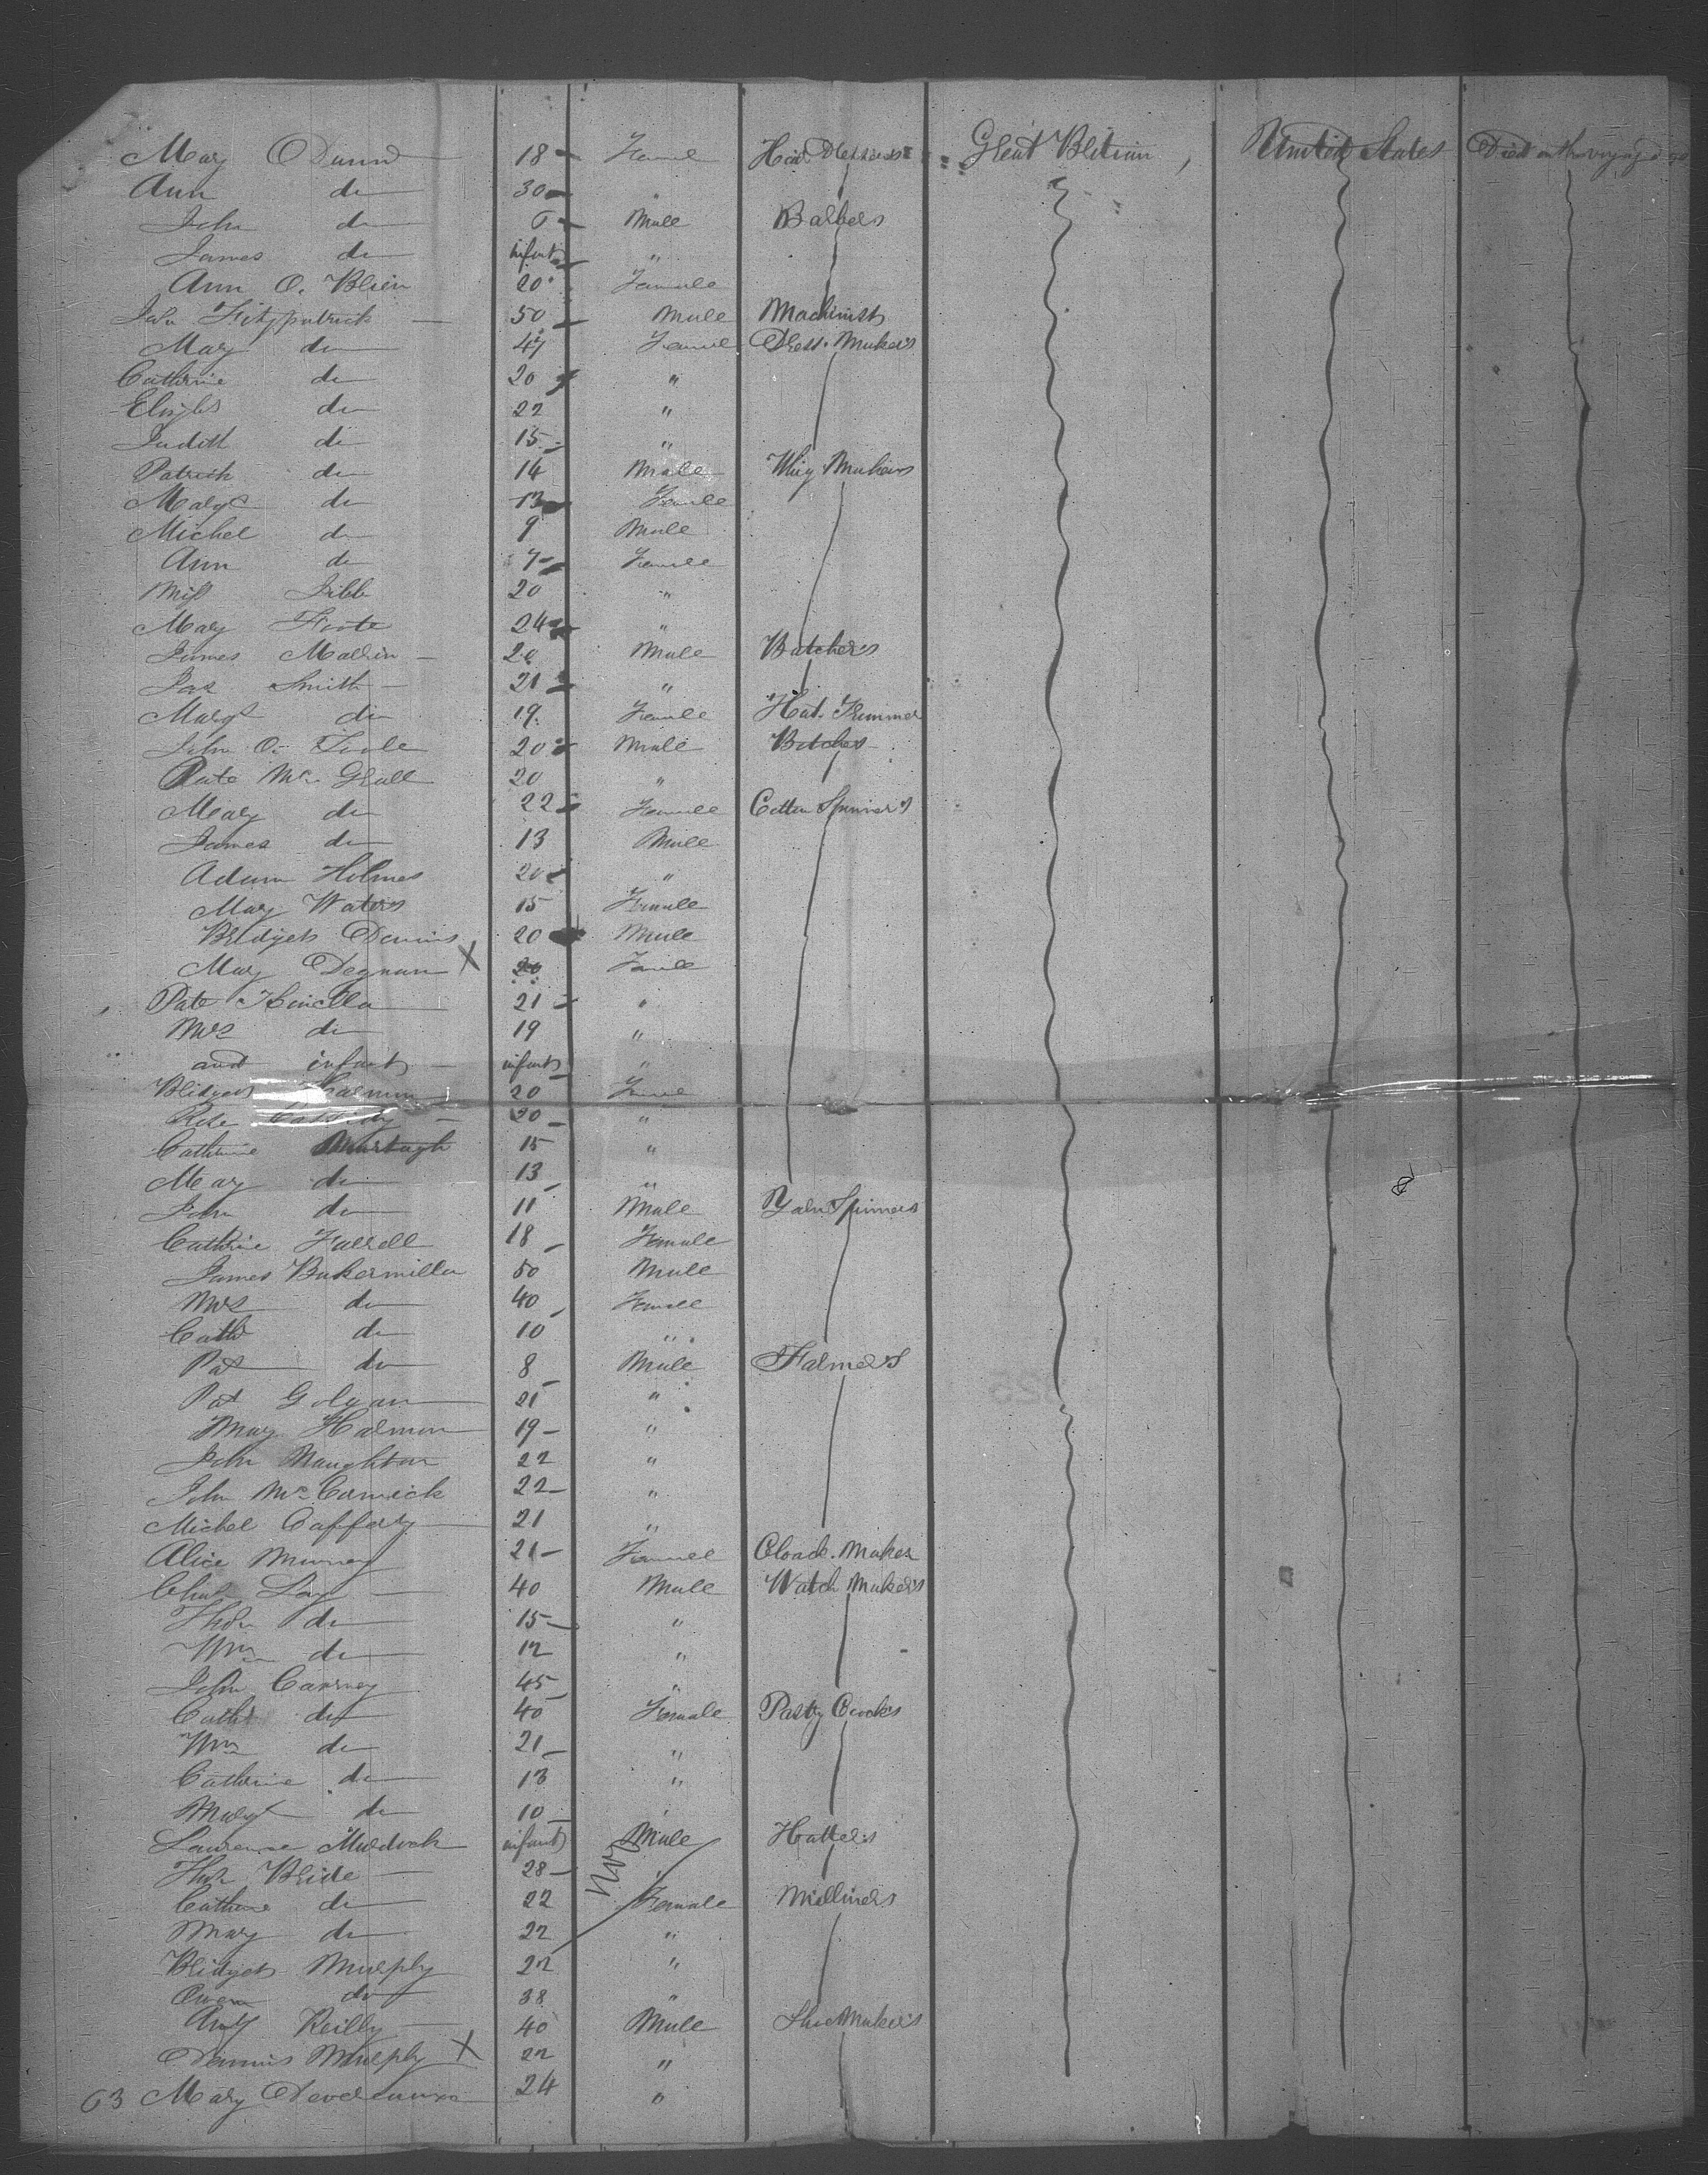 Mary Dunn 18 Female Hair Dressers Great Britian, United States Died on the voyage
Ann do 30 "
John do 6 Male Barbers
James do infant "
Ann O. Brien 20 Female
John Fitzpatrick 50 Male Machinist
Mary do 47 Female Dress. Makers
Cathrine do 20 "
do 22 "
Judith do 15 "
Patrick do 14 Male Whig Makers
Margt do 13 Female
Michel do 9 Male
Ann do 7 Female
Miss 20 "
Mary Foote 24 "
James 20 Male Butchers
Jas Smith 21 "
Margt do 19 Female Hat. Trimmer
John O. Toole 20 Male Butcher
Pate Mc Grall 20 "
Mary do 22 Female Cotton Spinners
James do 13 Male
Adam Holmes 20 "
Mary Waters 15 Female
Bridget Dennis 20 Male
Mary Degnan X 20 Female
Pate Kinella 21 "
Mrs do 19 "
and infant infant "
Bridget 20 Female
Rose 20 "
Cathrine Murtagh 15 "
Mary do 13 "
John do 11 Male Yarn Spinners
Cathrine Farrell 18 Female
James 50 Male
Mrs do 40 Female
Cath do 10 "
Pat do 8 Male Farmers
Pat Golgan 21 "
Mary Harmon 19 "
John Naughton 22 "
John Mc Cormick 22 "
Michel Caffery 21 "
Alice Murray 21 Female Cloack. Maker
40 Male Watch Makers
Thos do 15 "
Wm do 12 "
John Carney 45 "
Cath do 40 Female Pastry Coocks
Wm do 21 "
Cathrine do 13 "
Margt do 10 "
Laurence Murdock infant Male Hatters
28 "
Cathrine do 22 Female Milliners
Mary do 22 "
Bridget Murphy 22 "
Owen do 38 "
Reilly 40 Male Shoe Makers
Dennis Murphy X 22 "
63 Mary Devereauxx 24 "